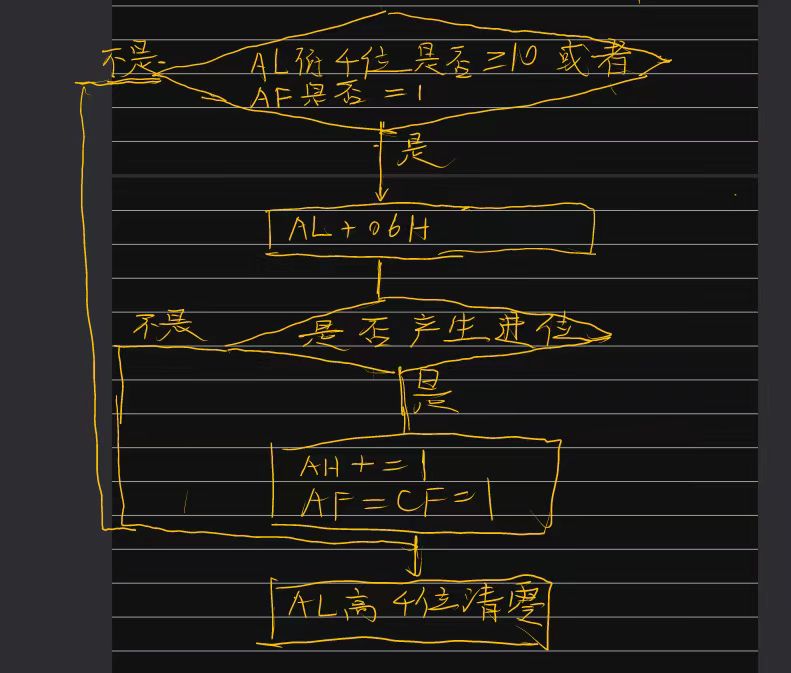 不是
AL低4位是否≥10或者
AF是否=1
是
AL+06H
不是
是否产生进位
是
AH+=1
AF=CF=1
AL高4位清零